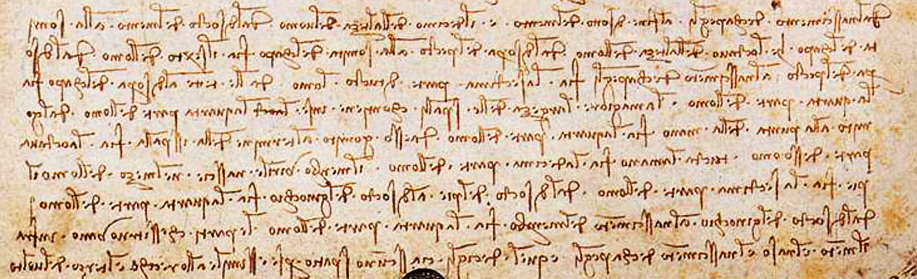 dal nasscimento de chapegli al fine di socto del mento e il decimo dellalteza dellomo · dal di socto del mento alla som
mita del chapo he loctavo dellalteza dellomo · dal di sopra del pecto alla somita del chapo fia il sexto dellomo · dal di so
pra del pecto al nasscimento de chapegli fia la sectima parte di tucto lomo · dalle tette al di sopra del chapo fia
la quarta parte dellomo · la magiore largheza delle spalli chontiene inse la quarta parte dellomo · dal go
mito alla punta della mano fia la quarta parte dellomo · da esso gomito al termine della isspalla fia la octava
parte desso omo · tucta la mano fia la decima parte dellomo · il menbro virile nasscie nel mezo dellomo · il
pie fia la sectima parte dellomo · dal di socto del pie al di socto del ginochio fia la quarta parte dellomo
dal di socto del ginochio al nasscimento del menbro fia la quarta parte dellomo · le parti chessi truovano infra
il mento el naso el nasscimento de chapegli e quel de cigli ciasscuno spatio perse essimile allorechio el terzo del volto